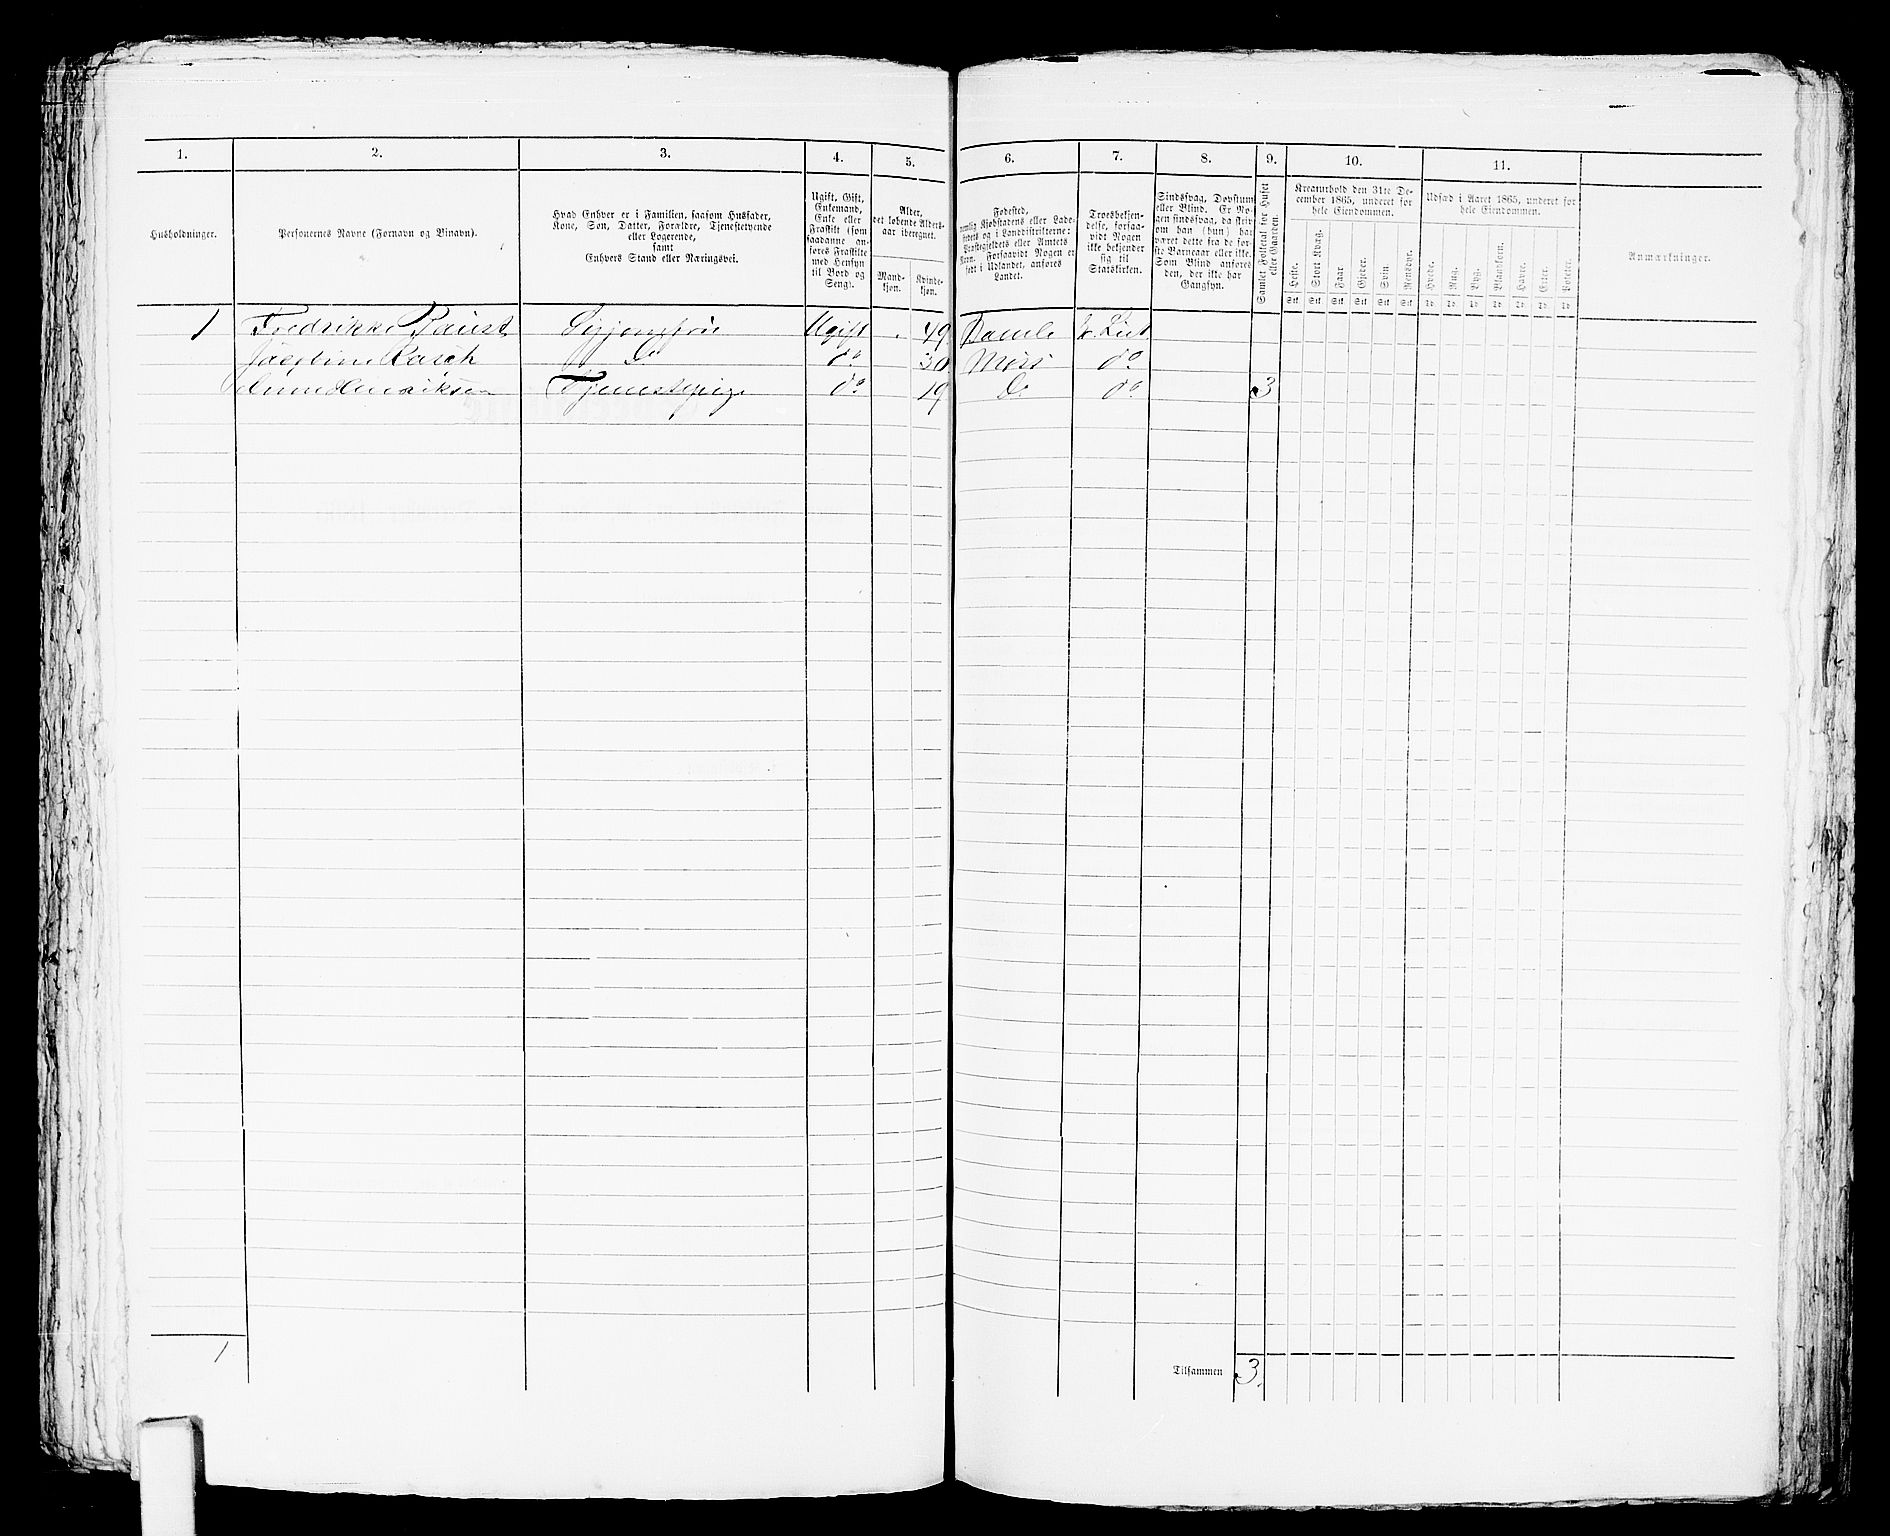 1. 2. 3. 4. 5. 6. 7. 8. 9. 10. 11.
Husholdninger.
Personernes Navne (Fornavn og Binavn).
Hvad Enhver er i Familien, saasom Husfader,
Kone, Søn, Datter, Forældre, Tjenestetyende
eller Logerende,
samt
Enhvers Stand eller Næringsvei.
Ugift, Gift,
Enkemand,
Enke eller
Fraskilt (som
saadanne an-
føres Fraskilte
med Hensyn
til Bord og
Seng).
Alder,
det løbende Alders-
aar iberegnet.
Mand-
kjøn.
Kvinde-
kjøn.
Fødested,
nemlig Kjøbstadens eller Lade-
stedets og i Landdistrikterne:
Præstegjeldets eller Amtets
Navn. Forsaavidt Nogen er
født i Udlandet, anføres
Landet.
Troesbekjen-
delse, forsaa-
vidt Nogen
ikke bekjender
sig til
Statskirken.
Sindssvag, Døvstum
eller Blind. Er No-
gen sindssvag, da skriv
om han (hun) har
været dette fra de før-
ste Barneaar eller ikke.
Som Blind anføres
den, der ikke har
Gangsyn.
Samlet Folketal for Huset
eller Gaarden.
Kreaturhold den 31te De-
cember 1865, underet for
hele Eiendommen.
Heste. Stort Kvæg. Faar. Gjeder. Svin. Rensdyr.
Stk. Stk. Stk. Stk. Stk. Stk.
Udsæd i Aaret 1865, underet for
hele Eiendommen.
Hvede. Rug. Byg. Blandkorn. Havre. Erter. Poteter.
Td. Td. Td. Td. Td. Td. Td.
Anmærkninger.
1 Fredrikke Ugift 49 Bamle
Jacobine Rasch D° d° 30 Moss d°
Anne Henriksen Tjenestepige d° 19 D° d° 3
1
Tilsammen 3.